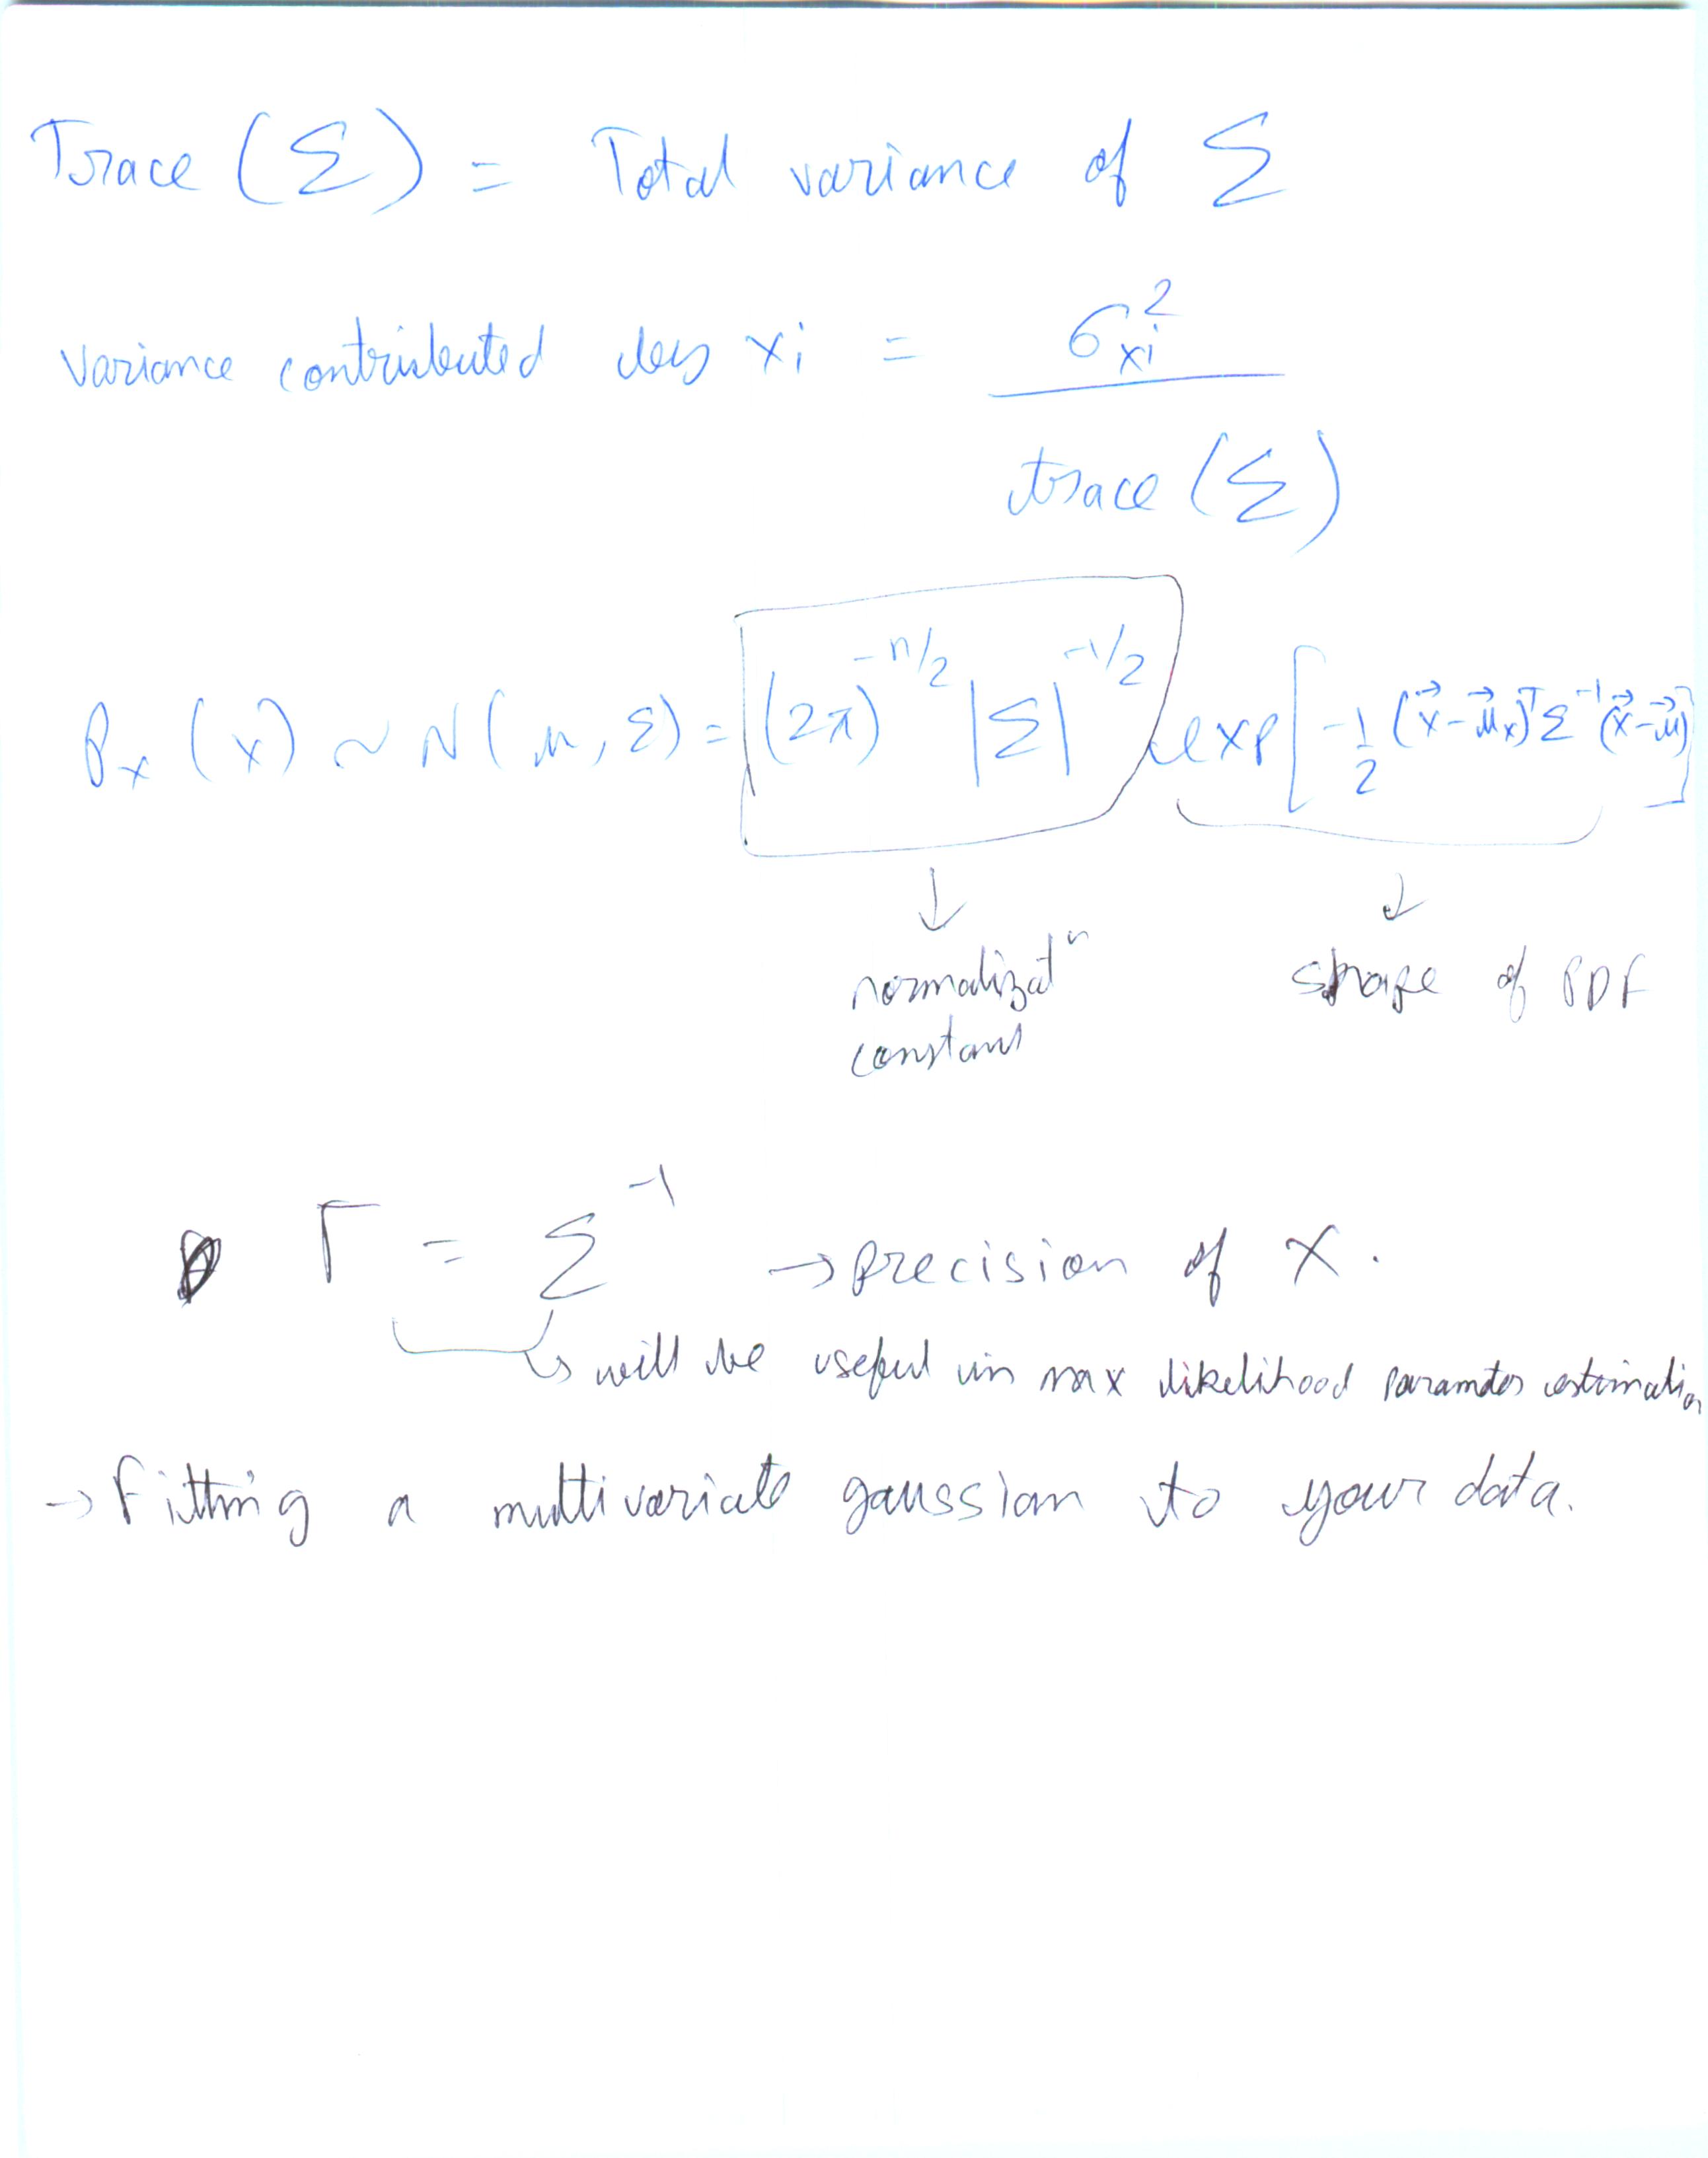 Trace (Σ) = Total variance of Σ
variance contributed by xi = σ²xi / trace (Σ)
Px (x) ~ N(μ, Σ) = (2π)^-n/2 |Σ|^-1/2 exp[-1/2 (x⃗-μ⃗x)ᵀ Σ^-1 (x⃗-μ⃗)]
normalizatⁿ
constant
shape of PDF
Γ = Σ^-1 → precision of X.
↳ will be useful in max likelihood paramter estimation
→ Fitting a multivariate gaussian to your data.